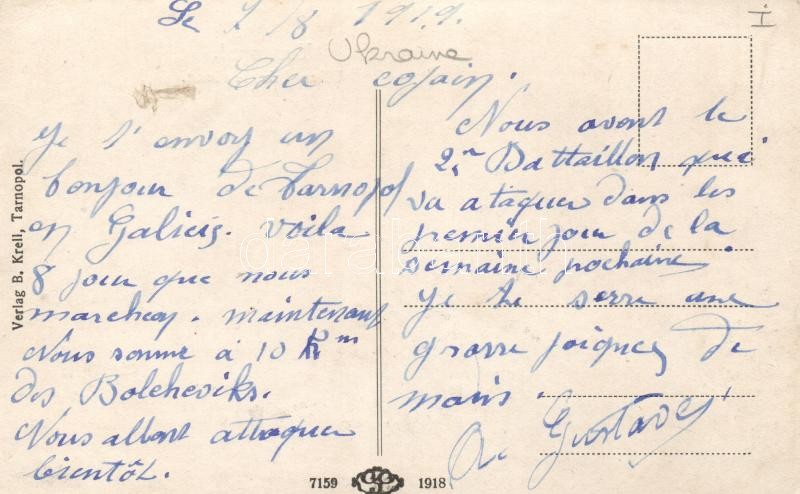 Le 7/8 1919.
Ukraine
I
Cher cosain.
Je t'envoy un
bonjour de Tarnopol
en Galicis. voila
8 jour que nous
marchon. maintenant
Nous somme à 10 Km
des Bolcheviks.
Nous allont attaquer
bientôt.
Nous avont le
2e Battaillon qui
va ataquer dans les
premier jour de la
semaine pochaine.
Je te serre une
grosse poignes de
mains.
Gustave
Verlag B. Krell, Tarnopol.
7159 1918